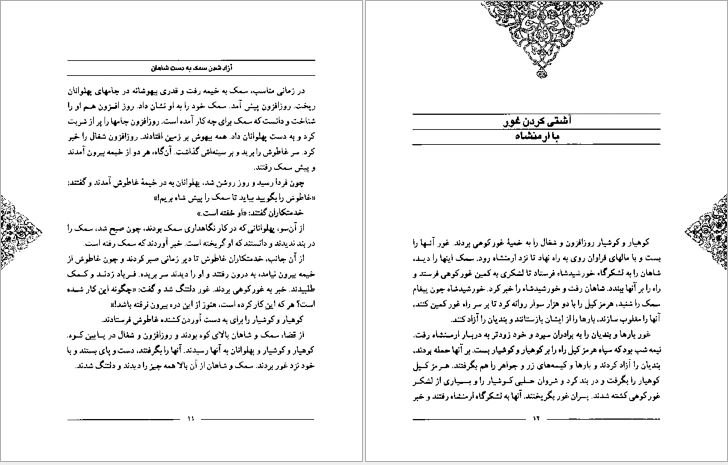 آزاد شدن سمک به دست شاهان
در زمانی مناسب، سمک به خیمه رفت و قدری بیهوشانه در جامهای پهلوانان
ریخت. روزافزون پیش آمد. سمک خود را به او نشان داد. روز افزون هم او را
شناخت و دانست که سمک برای چه کار آمده است. روزافزون جامها را پر از شربت
کرد و به دست پهلوانان داد. همه بیهوش بر زمین افتادند. روزافزون شغال را خبر
کرد. سر غاطوش را برید و بر سینه‌اش گذاشت. آن‌گاه، هر دو از خیمه بیرون آمدند
و پیش سمک رفتند.
چون فردا رسید و روز روشن شد، پهلوانان به در خیمهٔ غاطوش آمدند و گفتند:
«غاطوش را بگویید بیاید تا سمک را پیش شاه بریم!»
خدمتکاران گفتند: «او خفته است.»
از آن‌سو، پهلوانانی که در کار نگاهداری سمک بودند، چون صبح شد، سمک را
در بند ندیدند و دانستند که او گریخته است. خبر آوردند که سمک رفته است.
از آن جانب، خدمتکاران غاطوش تا دیر زمانی صبر کردند و چون غاطوش از
خیمه بیرون نیامد، به درون رفتند و او را دیدند سر بریده. فریاد زدند و کمک
طلبیدند. خبر به غورکوهی بردند. غور دلتنگ شد و گفت: «چگونه این کار شده
است؟ هر که این کار کرده است، هنوز از این دره بیرون نرفته باشد!»
کوهیار و کوشیار را برای به دست آوردن کشنده غاطوش فرستادند.
از قضا، سمک و شاهان بالای کوه بودند و روزافزون و شغال در پایین کوه.
کوهیار و کوشیار و پهلوانان به آنها رسیدند. آنها را بگرفتند، دست و پای بستند و با
خود نزد غور بردند. سمک و شاهان از آن بالا همه چیز را دیدند و دلتنگ شدند.
۱۱
آشتی کردن غور
با ارمنشاه
کوهیار و کوشیار روزافزون و شغال را به خمیهٔ غورکوهی بردند. غور آنها را
بست و با مالهای فراوان روی به راه نهاد تا نزد ارمنشاه رود. سمک اینها را دید،
شاهان را به لشکرگاه خورشیدشاه فرستاد تا لشکری به کمین غورکوهی فرستد و
راه را بر آنها ببندد. شاهان رفت و خورشیدشاه را خبر کرد. خورشیدشاه چون پیغام
سمک را شنید، هرمز کیل را با دو هزار سوار روانه کرد تا بر سر راه غور کمین کنند،
آنها را مغلوب سازند، بارها را از ایشان بازستانند و بندیان را آزاد کنند.
غور بارها و بندیان را به برادران سپرد و خود زودتر به دربار ارمنشاه رفت.
نیمه شب بود که سپاه هرمز کیل راه را بر کوهیار و کوشیار بست. بر آنها حمله بردند،
بندیان را آزاد کردند و بارها و کیسه‌های زر و جواهر را هم بگرفتند. هرمز کیل
کوهیار را بگرفت و در بند کرد و شروان حلبی کوشیار را و بسیاری از لشکر
غورکوهی کشته شدند. پسران غور بگریختند. آنها به لشکرگاه ارمنشاه رفتند و خبر
۱۲